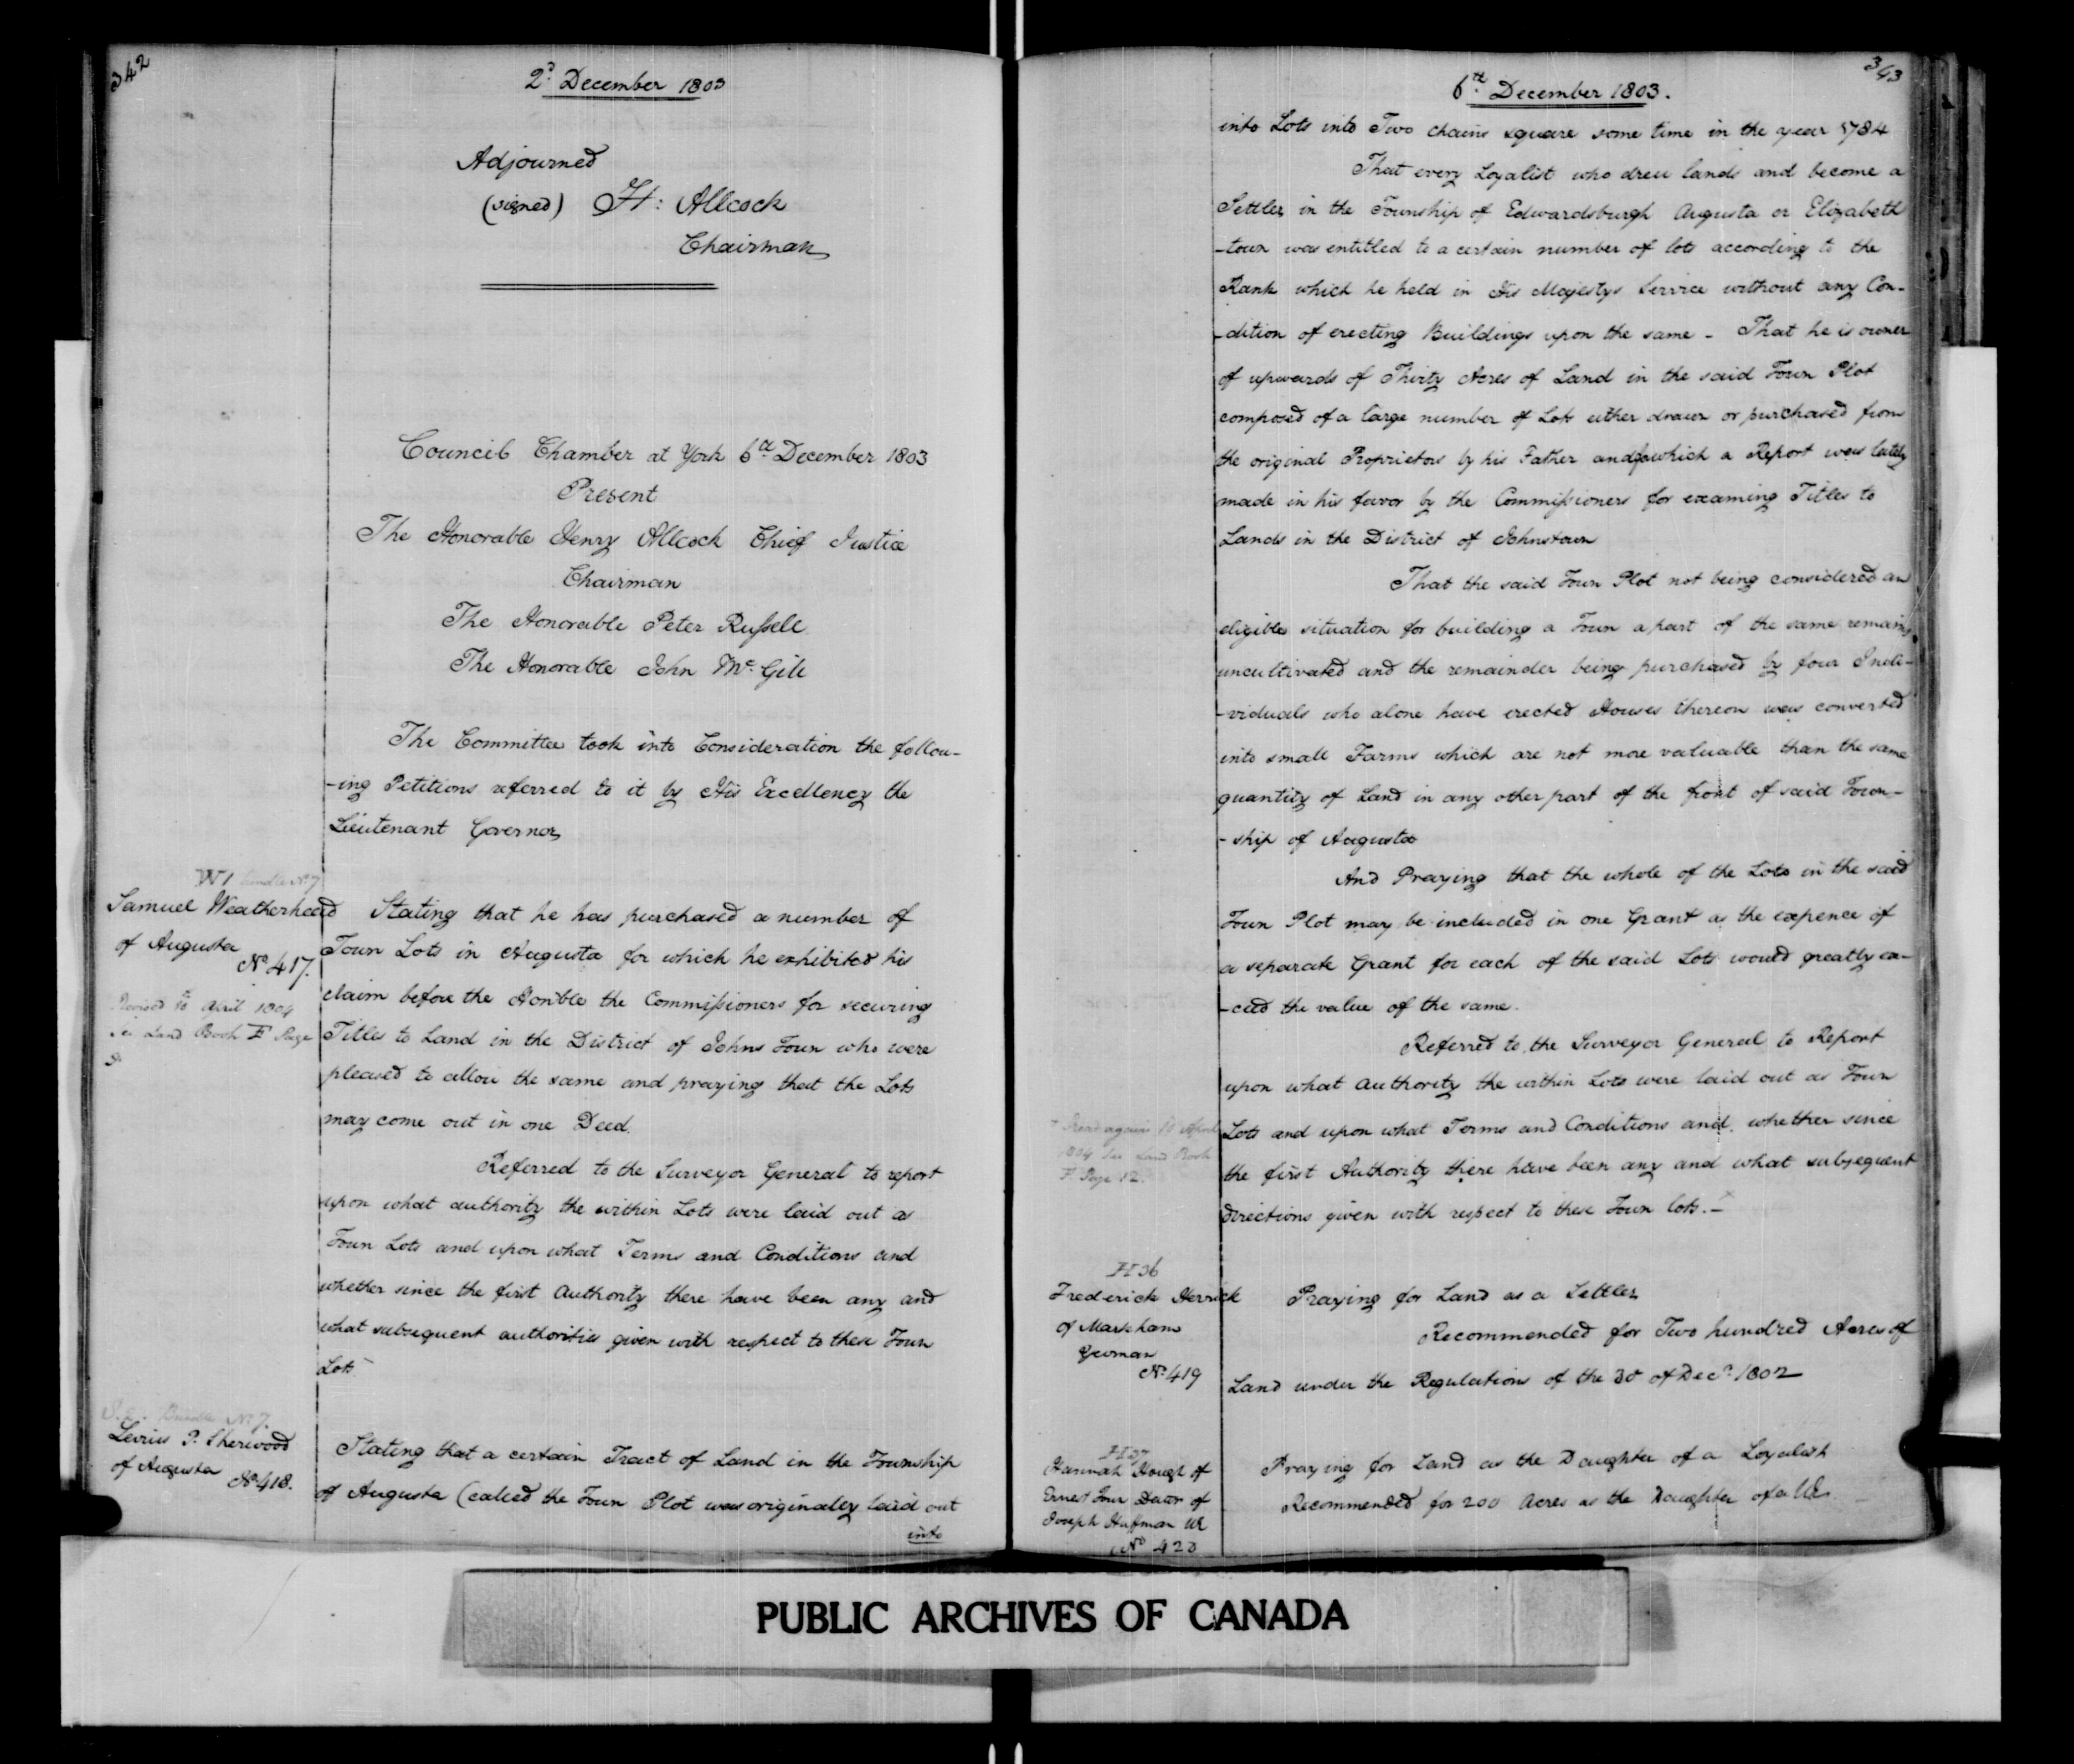 342
2d December 1803
Adjourned
(signed) H: Allcock
Chairman
Council Chamber at York 6th December 1803
Present
The Honorable Henry Allcock Chief Justice
Chairman
The Honorable Peter Russell
The Honorable John McGill
The Committee took into Consideration the follow-
-ing Petitions referred to it by His Excellency the
Lieutenant Governor
W1 bundle No 7
Samuel Weatherhead
of Augusta
No 417.
Revised 10 April 1804
See Land Book F Page
Stating that he has purchased a number of
Town Lots in Augusta for which he exhibited his
claim before the Honble the Commissioners for securing
Titles to Land in the District of Johns Town who were
pleased to allow the same and praying that the Lots
may come out in one Deed.
Referred to the Surveyor General to report
upon what authority the within Lots were laid out as
Town Lots and upon what Terms and Conditions and
whether since the first Authority there have been any and
what subsequent authorities given with respect to these Town
Lots
Bundle No 7.
Levius P. Sherwood
of Augusta
No 418.
Stating that a certain Tract of Land in the Township
of Augusta (called the Town Plot was originally laid out
into
343
6th December 1803.
into Lots into Two chains square some time in the year 1784
That every Loyalist who drew lands and become a
Settler in the Township of Edwardsburgh Augusta or Elizabeth
-town was entitled to a certain number of lots according to the
Rank which he held in His Majestys Service without any Con-
-dition of erecting Buildings upon the same - That he is owner
of upwards of Thirty Acres of Land in the said Town Plot
composed of a large number of Lots either drawn or purchased from
the original Proprietors by his Father and for which a Report was lately
made in his favor by the Commissioners for examing Titles to
Lands in the District of Johnstown
That the said Town Plot not being considered an
eligible situation for building a Town a part of the same remains
uncultivated and the remainder being purchased by four Indi-
-viduals who alone have erected Houses thereon was converted
into small Farms which are not more valuable than the same
quantity of Land in any other part of the front of said Town-
-ship of Augusta
And Praying that the whole of the Lots in the said
Town Plot may be included in one Grant as the expence of
a separate Grant for each of the said Lots would greatly ex-
-ceed the value of the same.
Referred to the Surveyor General to Report
upon what authority the within Lots were laid out as Town
Lots and upon what Terms and Conditions and whether since
the first Authority there have been any and what subsequent
directions given with respect to these Town lots. -
+ Read again 10 April
1804 See Land Book
F Page 12.
H 36
Frederick Herrick
of Markham
Yeoman
No 419
Praying for Land as a Settler
Recommended for Two hundred Acres of
Land under the Regulations of the 30 of Decr 1802
H 37
Hannah Hough of
Ernest Town Daur of
Joseph Huffman UE
No 420
Praying for Land as the Daughter of a Loyalist
Recommended for 200 Acres as the Daughter of a UE
PUBLIC ARCHIVES OF CANADA